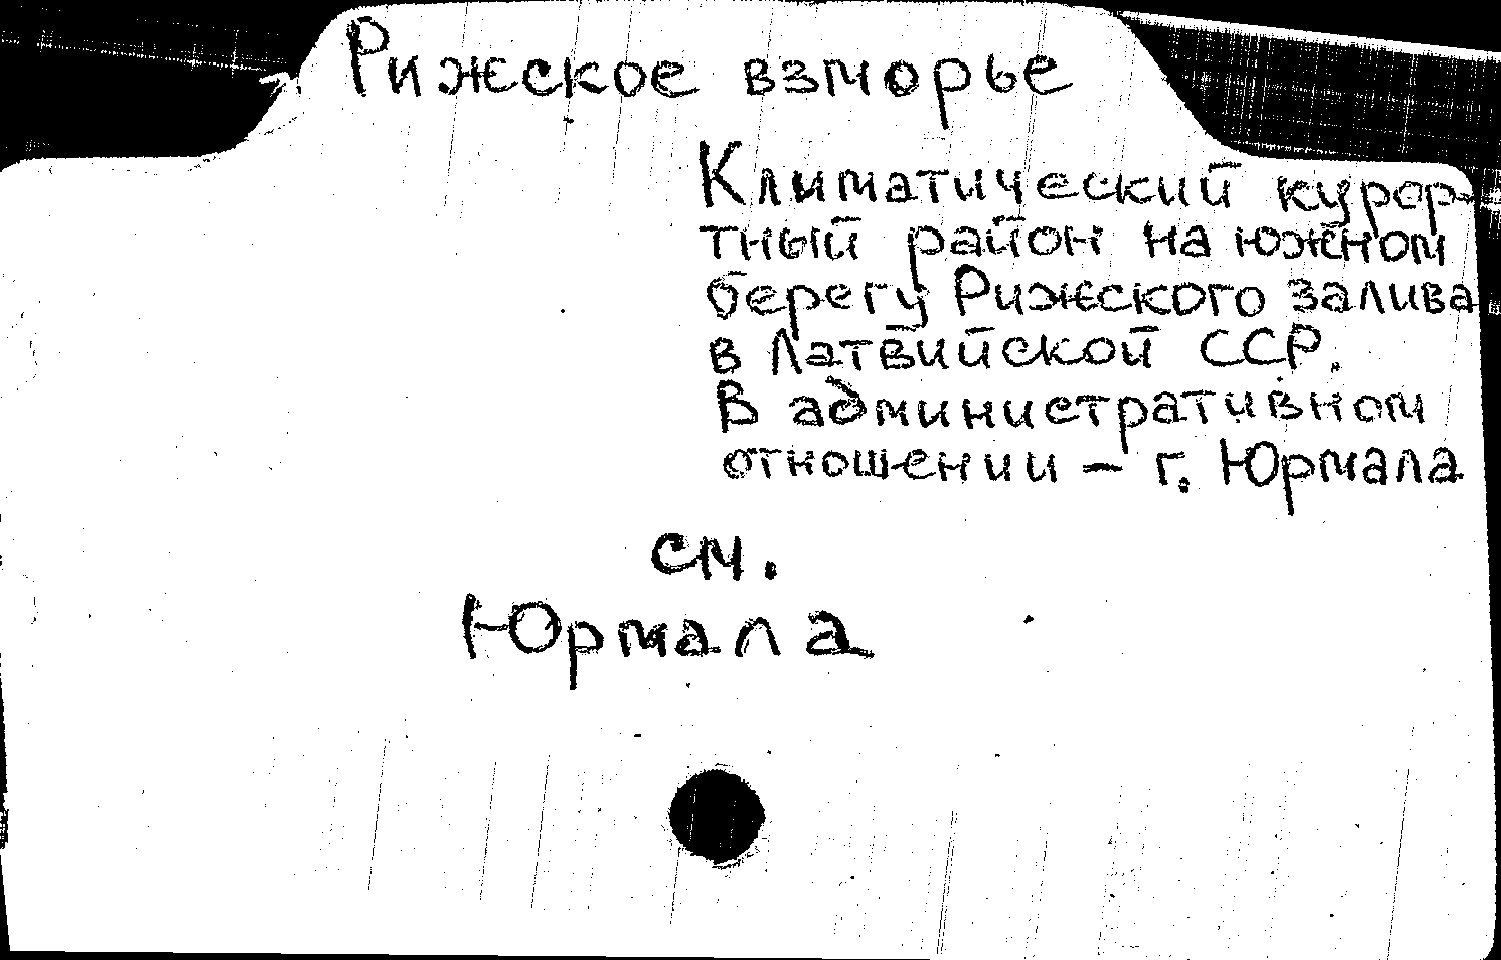 Рижское взморье
Климатический курор-
тный район на южном
берегу Рижского залива
в Латвийской ССР.
В административном
отношении – г. Юрмала
см.
Юрмала